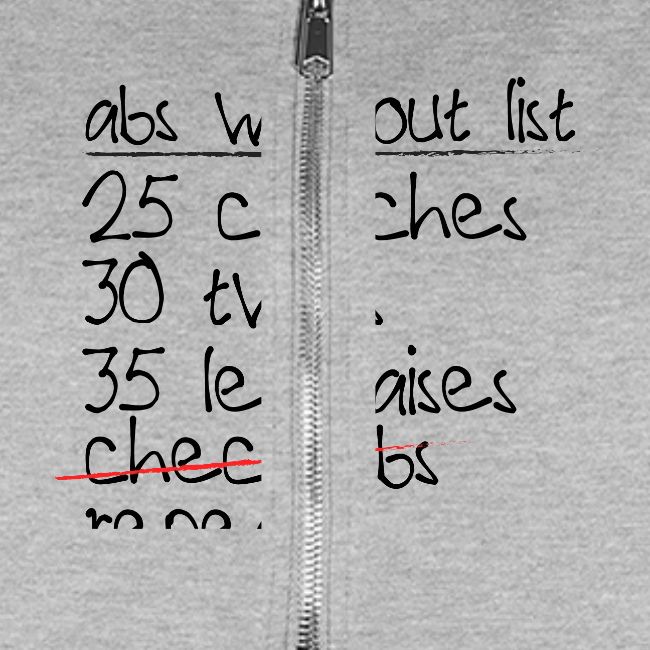 abs w out list
25 c ches
30 tw
35 le aises
chec bs